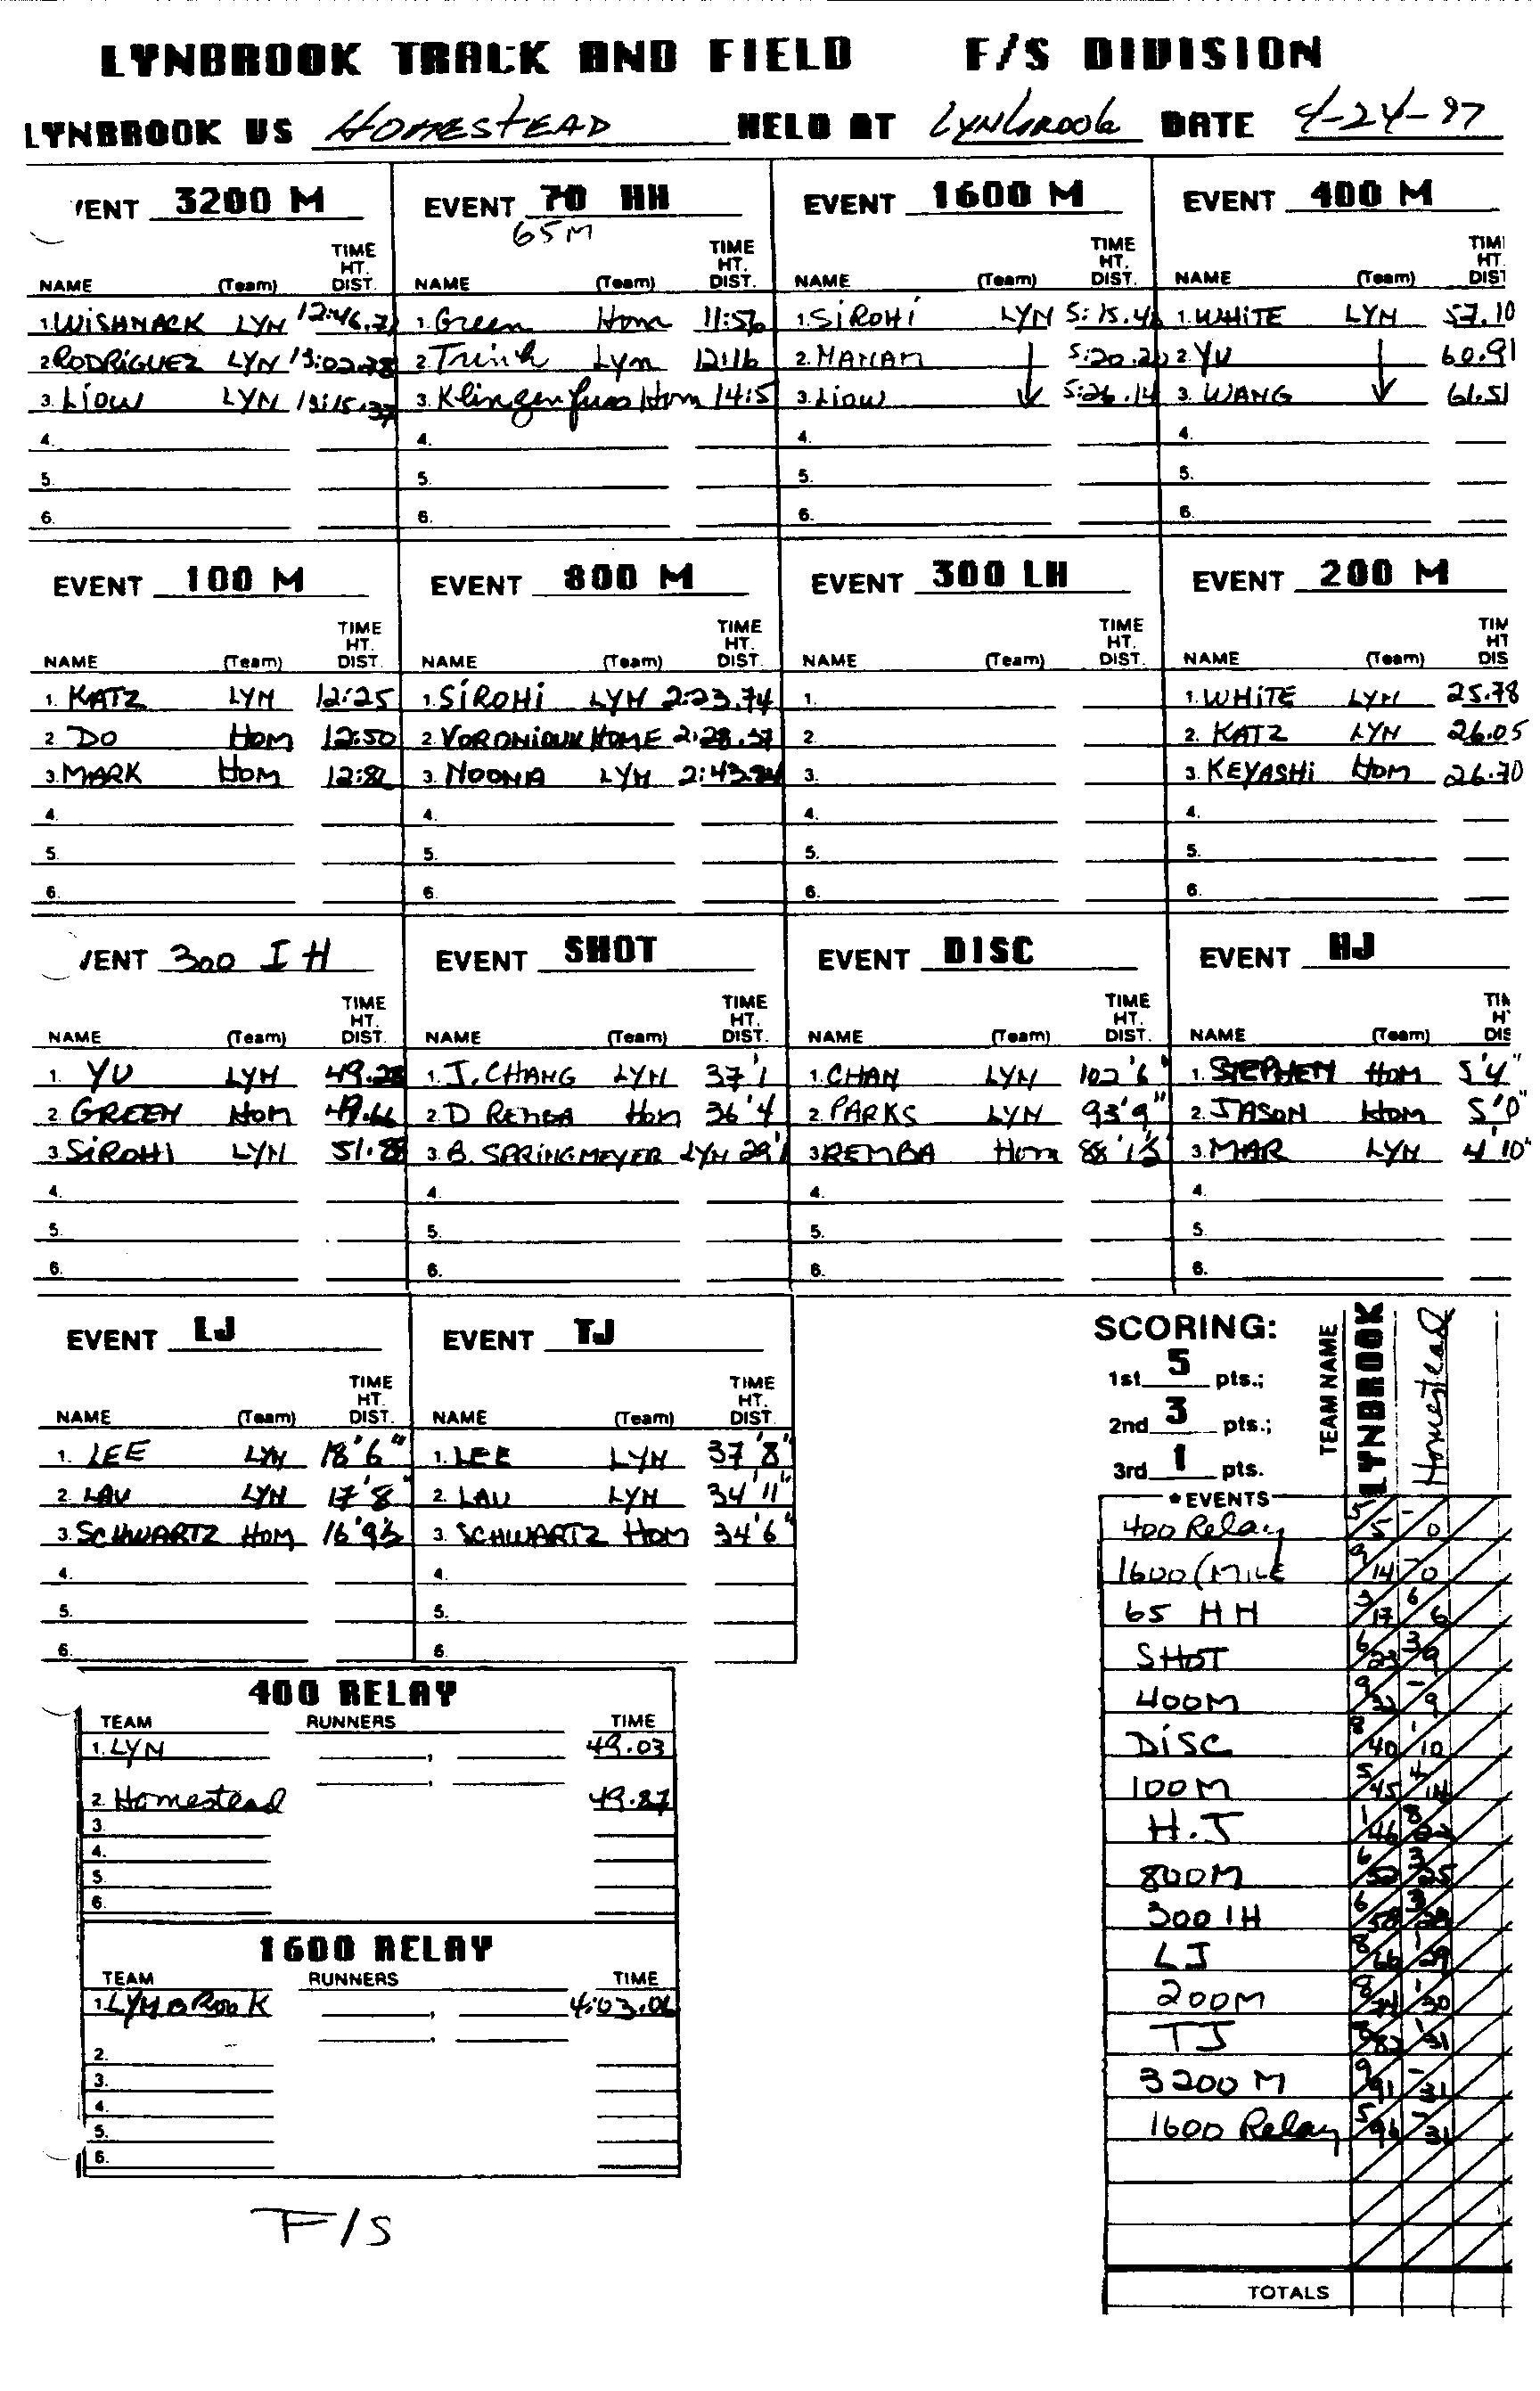 LYNBROOK TRACK AND FIELD F/S DIVISION
LYNBROOK VS HOMESTEAD HELD AT LYNbrook DATE 4-24-97
VENT 3200 M
NAME (Team) TIME HT. DIST.
1. WISHNACK LYN 12:46.7
2. RODRIGUEZ LYN 13:02.78
3. Liow LYN 13:15.37
4.
5.
6.
EVENT 70 HH
65M
NAME (Team) TIME HT. DIST.
1. Green Hom 11:56
2. Trinh Lyn 12:16
3. Klingenfuss Hom 14:5
4.
5.
6.
EVENT 1600 M
NAME (Team) TIME HT. DIST.
1. SIROHI LYN 5:15.4
2. MANAM ↓ 5:20.20
3. Liow 5:26.14
4.
5.
6.
EVENT 400 M
NAME (Team) TIM HT DIST
1. WHITE LYN 57.10
2. YU ↓ 60.91
3. WANG 61.51
4.
5.
6.
EVENT 100 M
NAME (Team) TIME HT. DIST.
1. KATZ LYN 12:25
2. DO HOM 12:50
3. MARK HOM 12:8
4.
5.
6.
EVENT 800 M
NAME (Team) TIME HT. DIST.
1. SIROHI LYN 2:23.74
2. HOME 2:28.37
3. NOONIA LYN 2:43.
4.
5.
6.
EVENT 300 LH
NAME (Team) TIME HT. DIST.
1.
2.
3.
4.
5.
6.
EVENT 200 M
NAME (Team) TIM HT DIS
1. WHITE LYN 25.78
2. KATZ LYN 26.05
3. KEYASHI HOM 26.70
4.
5.
6.
VENT 300 I H
NAME (Team) TIME HT. DIST.
1. YU LYN 49.28
2. GREEN HOM 49.66
3. SIROHI LYN 51.88
4.
5.
6.
EVENT SHOT
NAME (Team) TIME HT. DIST.
1. J. CHANG LYN 37'1
2. D REMBA Hom 36'4
3. B. SPRINGMEYER LYN 29'1
4.
5.
6.
EVENT DISC
NAME (Team) TIME HT. DIST.
1. CHAN LYN 102'6"
2. PARKS LYN 93'9"
3. REMBA Hom 88'1½
4.
5.
6.
EVENT HJ
NAME (Team) TIM H DIS
1. STEPHEN HOM 5'4"
2. JASON HOM 5'0"
3. MAR LYN 4'10"
4.
5.
6.
EVENT LJ
NAME (Team) TIME HT. DIST.
1. LEE LYN 18'6"
2. LAU LYN 17'8"
3. SCHWARTZ HOM 16'9½
4.
5.
6.
EVENT TJ
NAME (Team) TIME HT. DIST.
1. LEE LYN 37'8"
2. LAU LYN 34'11"
3. SCHWARTZ HOM 34'6"
4.
5.
6.
400 RELAY
TEAM RUNNERS TIME
1. LYN , 49.03
2. Homestead 49.87
3.
4.
5.
6.
1600 RELAY
TEAM RUNNERS TIME
1. LYNBROOK , 4:03.06
2.
3.
4.
5.
6.
F/S
SCORING:
1st 5 pts.;
2nd 3 pts.;
3rd 1 pts.
TEAM NAME LYNBROOK Homestead
*EVENTS
400 Relay 5/5 -/0
1600 (MILE 9/14 -/0
65 HH 3/17 6/6
SHOT 6/23 3/9
400M 9/32 -/9
DISC 8/40 1/10
100M 5/45 4/14
H.J 1/46 8/22
800M 6/52 3/25
300 IH 6/58 3/28
LJ 8/66 1/29
200M 8/74 1/30
TJ 8/82 1/31
3200 M 9/91 -/31
1600 Relay 5/96 -/31
TOTALS